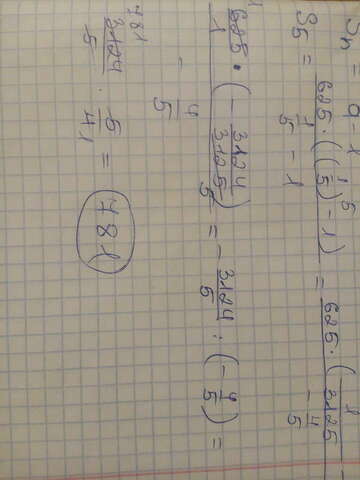 Sₙ = q - 1
S₅ = 625 · ((1/5)⁵ - 1) / (1/5 - 1) = 625 · (1/3125 - / (- 4/5)
625/1 · (- 3124/3125) / (- 4/5) = - 3124/5 : (- 4/5) =
3124/5 · 5/4 = 781